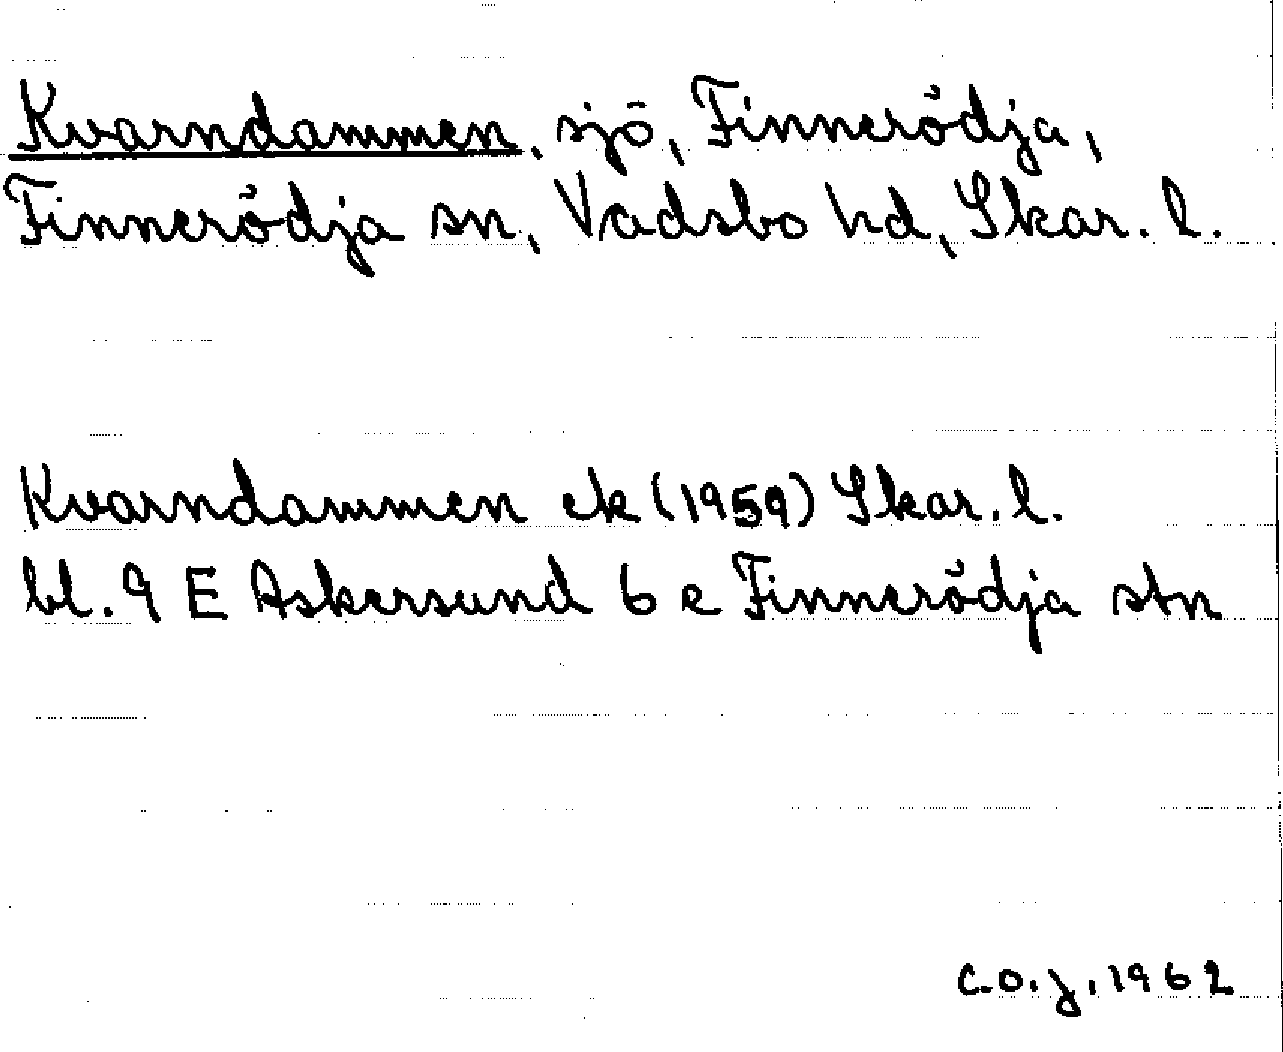 Kvarndammen, sjö, Finnerödja,
Finnerödja sn, Vadsbo hd, Skar. l.
Kvarndammen ek (1959) Skar. l.
bl. 9 E Askersund 6 e Finnerödja stn
C.O.J. 1962